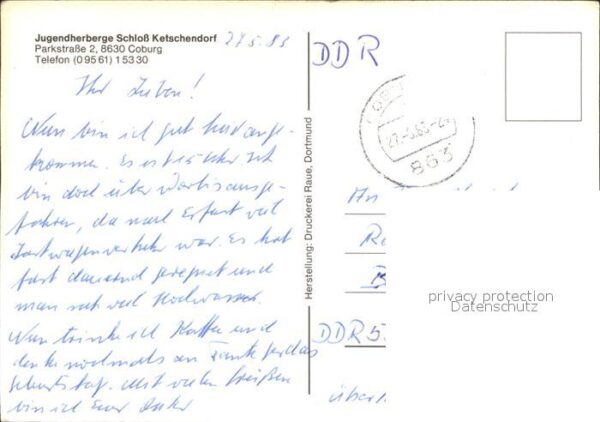 Jugendherberge Schloß Ketschendorf
Parkstraße 2, 8630 Coburg
Telefon (0 95 61) 1 53 30
27.5.83
Ihr Lieben!
Nun bin ich gut hier ange-
kommen. Es ist 15 Uhr. Ich
bin doch über Wartha ausge-
fahren, da nach Erfurt viel
war. Es hat
fast dauernd geregnet und
man sah viel Hochwasser.
Nun trinke ich Kaffee und
denke nochmals an
Geburtstag. Mit vielen Grüßen
bin ich Euer
Herstellung: Druckerei Raue, Dortmund
DDR
27.-5.83
863
An
DDR 5
über
privacy protection
Datenschutz